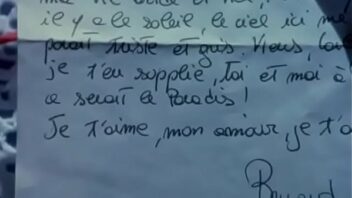 il y a le soleil, le ciel ici me
paraît triste et gris. Viens,
je t'en supplie, toi et moi à
ce serait le Paradis!
Je t'aime, mon amour, je t'a